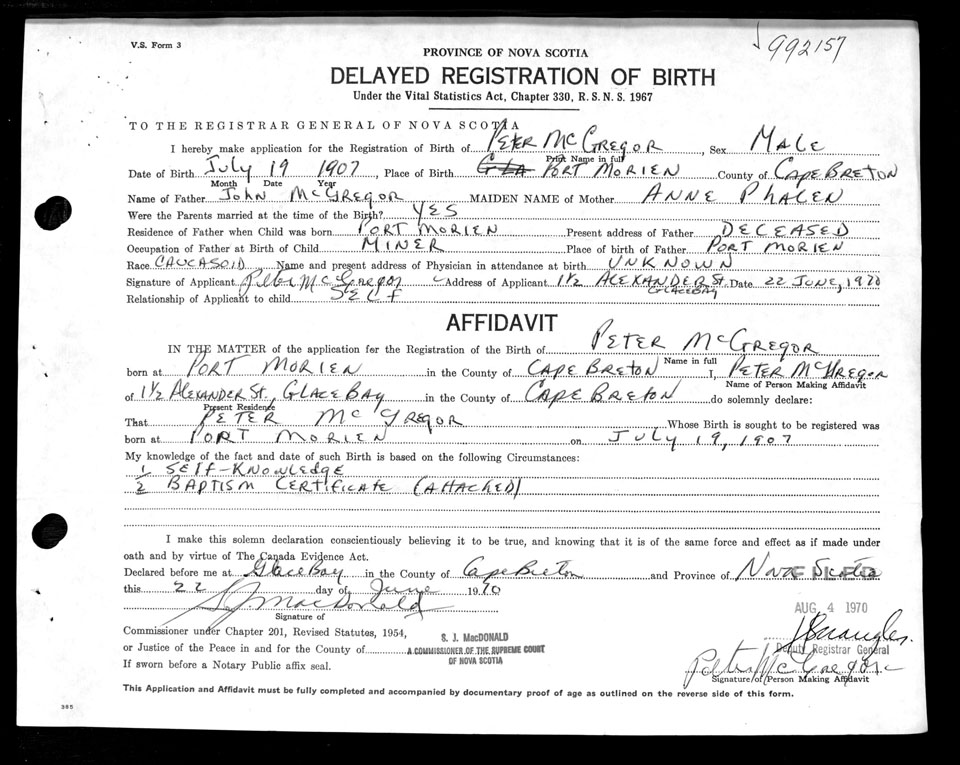 V.S. Form 3
992157
PROVINCE OF NOVA SCOTIA
DELAYED REGISTRATION OF BIRTH
Under the Vital Statistics Act, Chapter 330, R. S. N. S. 1967
TO THE REGISTRAR GENERAL OF NOVA SCOTIA
I hereby make application for the Registration of Birth of PETER McGREGOR, Sex MALE
Print Name in full
Date of Birth July 19 1907, Place of Birth GLA PORT MORIEN County of CAPE BRETON
Month Date Year
Name of Father JOHN McGREGOR MAIDEN NAME of Mother ANNE PHALEN
Were the Parents married at the time of the Birth? YES
Residence of Father when Child was born PORT MORIEN Present address of Father DECEASED
Occupation of Father at Birth of Child MINER Place of birth of Father PORT MORIEN
Race CAUCASOID Name and present address of Physician in attendance at birth UNKNOWN
Signature of Applicant Peter McGregor Address of Applicant 1 1/2 ALEXANDER St. GLACE BAY Date 22 JUNE, 1970
Relationship of Applicant to child SELF
AFFIDAVIT
IN THE MATTER of the application for the Registration of the Birth of PETER McGREGOR
Name in full
born at PORT MORIEN in the County of CAPE BRETON I, PETER McGREGOR
Name of Person Making Affidavit
of 1 1/2 ALEXANDER St., GLACE BAY in the County of CAPE BRETON do solemnly declare:
Present Residence
That PETER McGREGOR Whose Birth is sought to be registered was
born at PORT MORIEN on JULY 19, 1907
My knowledge of the fact and date of such Birth is based on the following Circumstances:
1/ SELF-KNOWLEDGE
2/ BAPTISM CERTIFICATE (ATTACHED)
I make this solemn declaration conscientiously believing it to be true, and knowing that it is of the same force and effect as if made under
oath and by virtue of The Canada Evidence Act.
Declared before me at Glace Bay in the County of Cape Breton and Province of Nova Scotia
this 22 day of June 1970
FILED
AUG 4 1970
S J MacDonald
Signature of
Commissioner under Chapter 201, Revised Statutes, 1954,
or Justice of the Peace in and for the County of
If sworn before a Notary Public affix seal.
S. J. MacDONALD
A COMMISSIONER OF THE SUPREME COURT
OF NOVA SCOTIA
Deputy Registrar General
Peter McGregor
Signature of Person Making Affidavit
This Application and Affidavit must be fully completed and accompanied by documentary proof of age as outlined on the reverse side of this form.
385